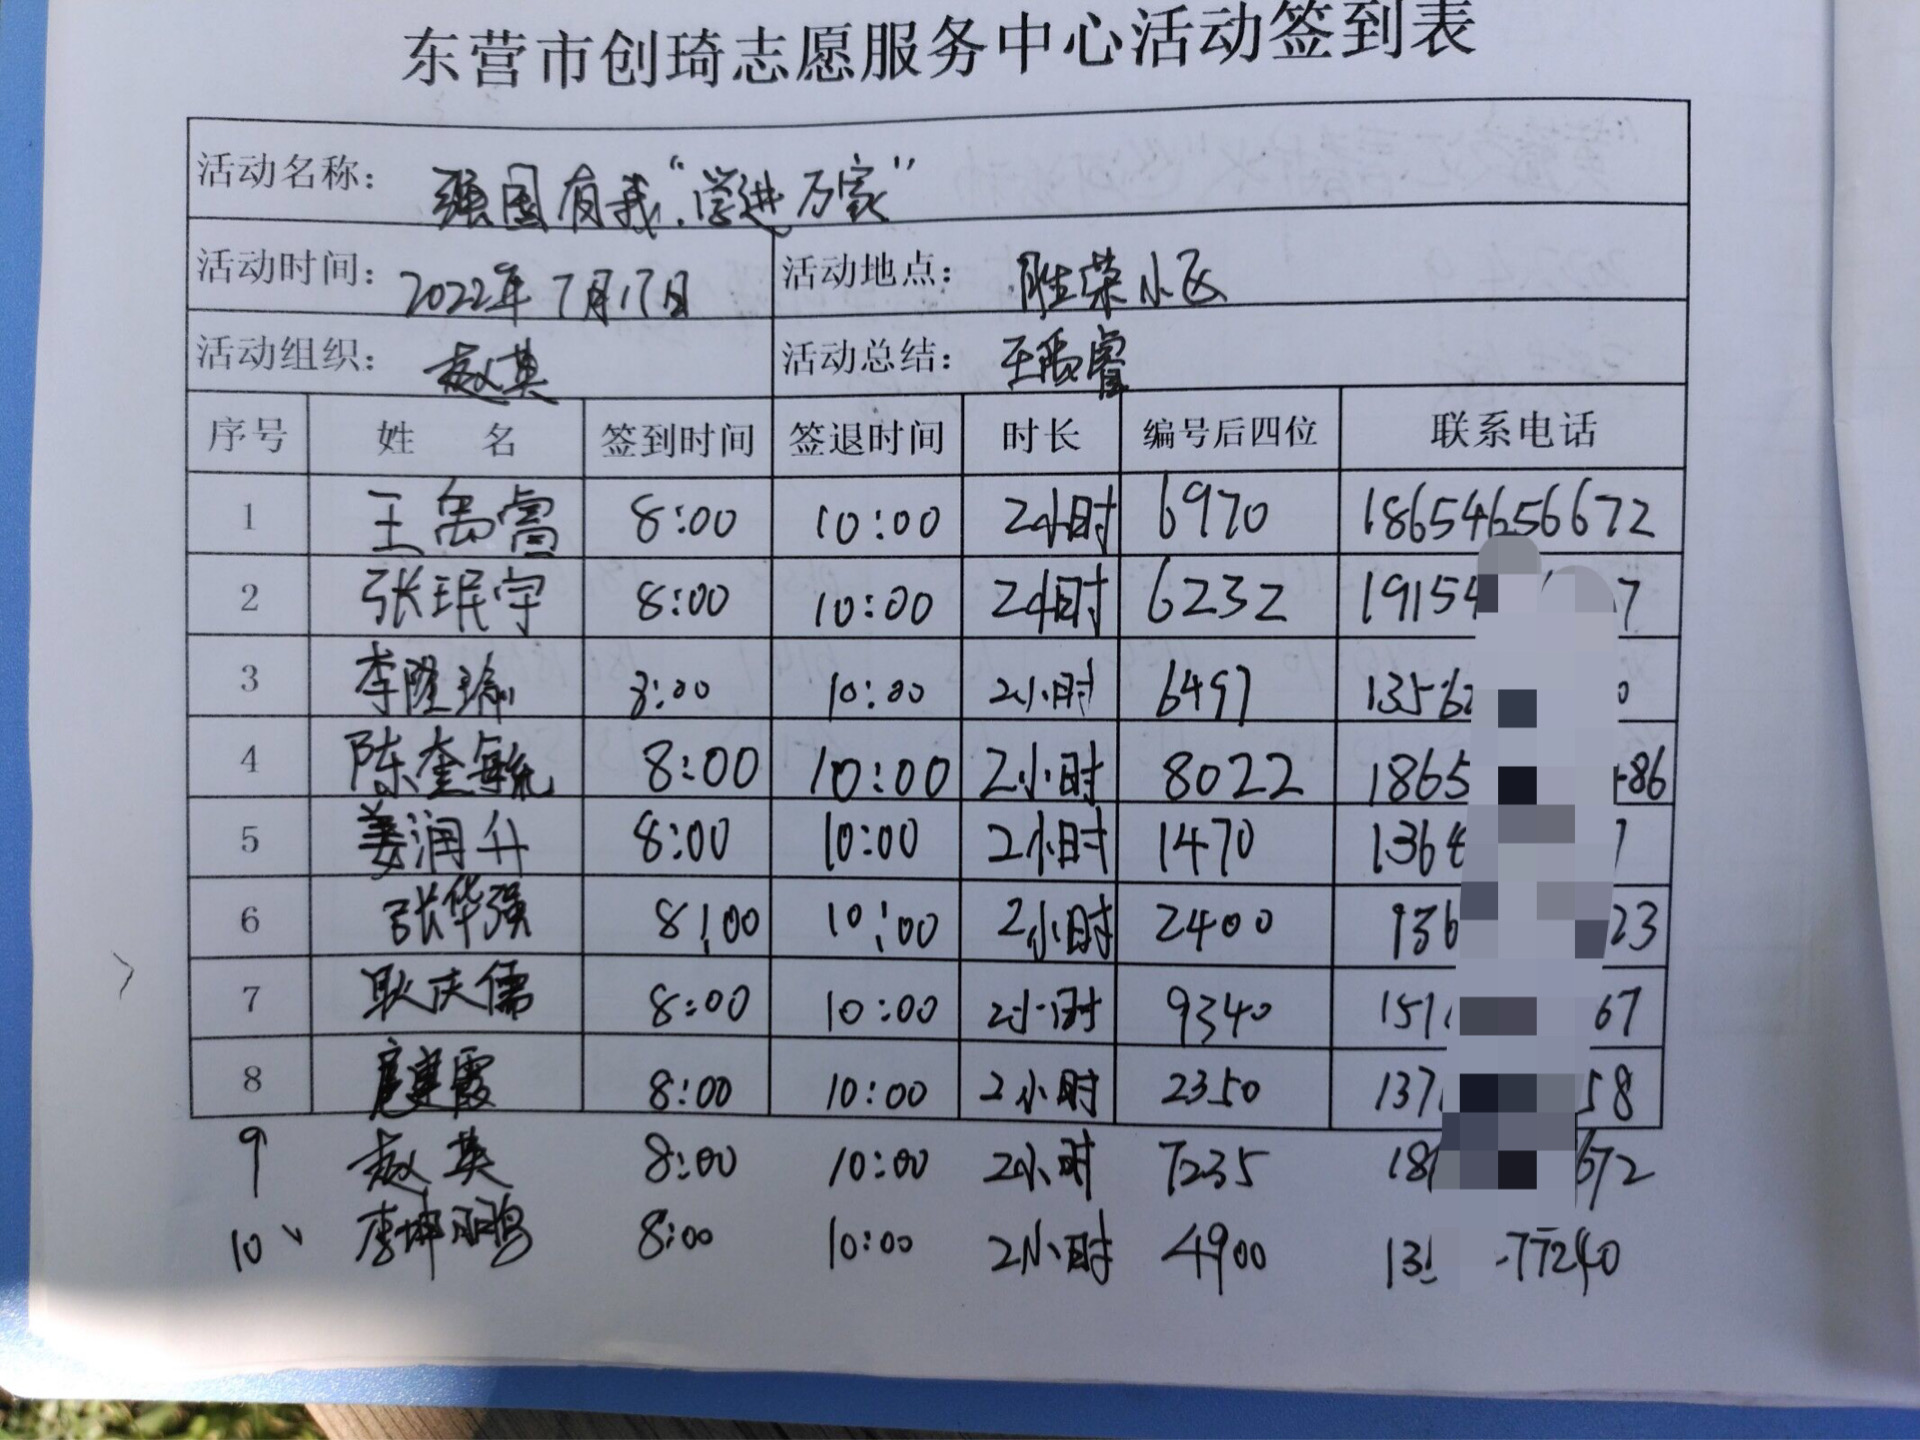 东营市创琦志愿服务中心活动签到表
活动名称： 强国有我“学进万家”
活动时间： 2022年7月17日 活动地点： 胜荣小区
活动组织： 赵英 活动总结： 王禹睿
序号 姓 名 签到时间 签退时间 时长 编号后四位 联系电话
1 王禹睿 8:00 10:00 2小时 6970 18654656672
2 张珉宇 8:00 10:00 2小时 6232 19154 7
3 李隆瑜 8:00 10:00 2小时 6497 13562 0
4 陈奎毓 8:00 10:00 2小时 8022 1865 86
5 姜润升 8:00 10:00 2小时 1470 1368 7
6 张华强 8:00 10:00 2小时 2400 136 23
7 耿庆儒 8:00 10:00 2小时 9340 151 67
8 建霞 8:00 10:00 2小时 2350 137 58
9 赵英 8:00 10:00 2小时 7235 18 672
10、 李坤鹏 8:00 10:00 2小时 4900 13 77240